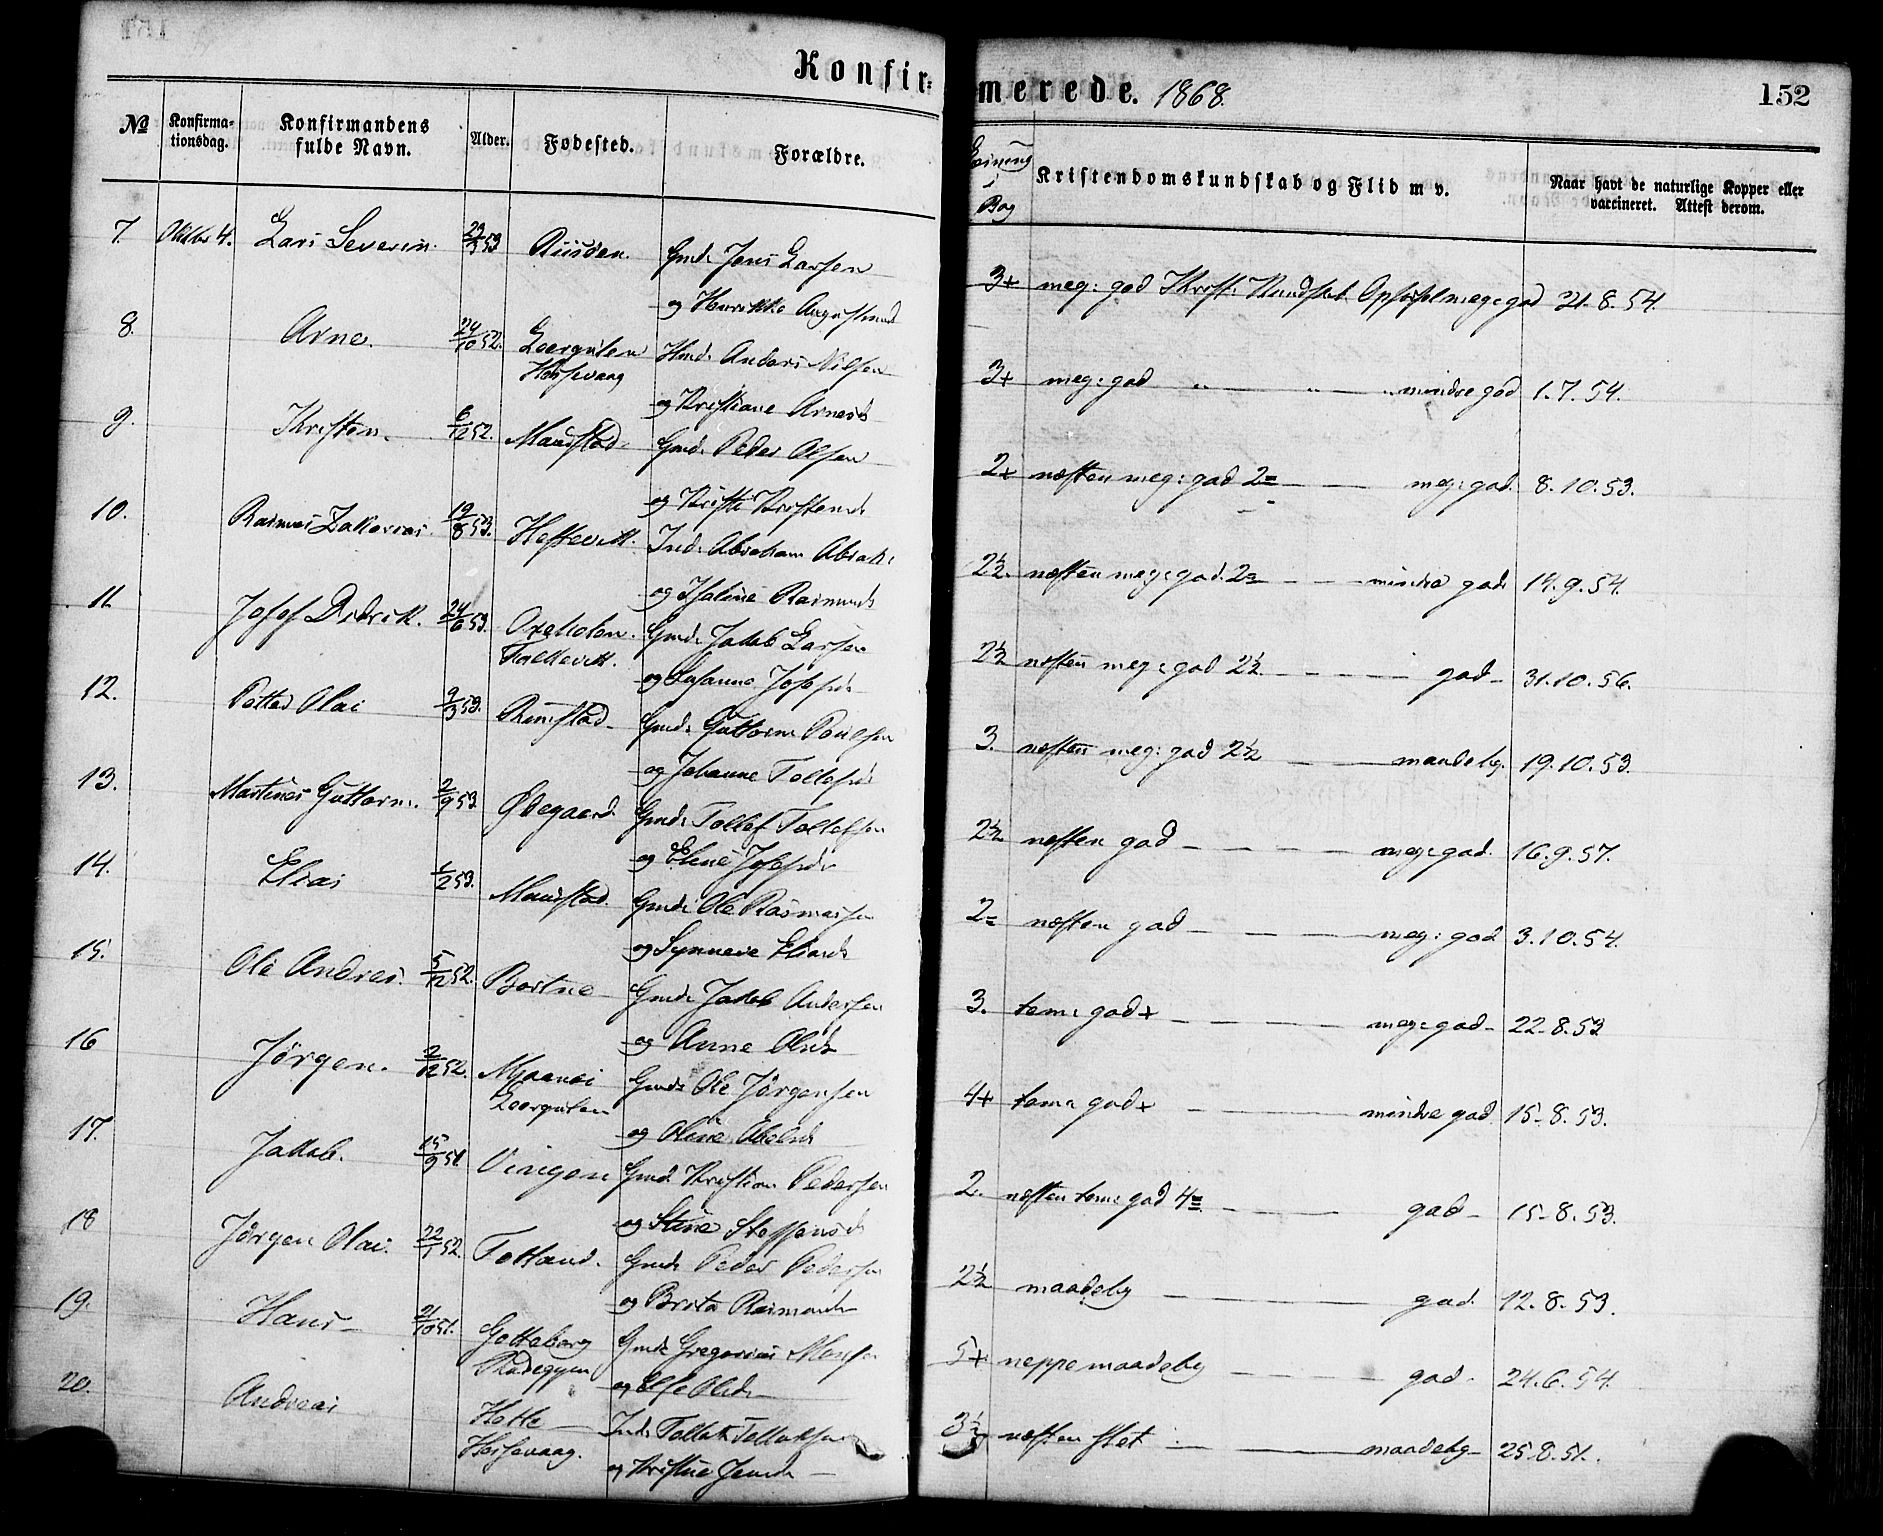 Konfir-
merede. 1868. 152
No Konfirma-tionsdag. Konfirmandens fulde Navn. Alder. Fødested. Forældre. Bog Kristendomskundskab og Flid m v. Naar havt de naturlige Kopper eller vaccineret. Attest derom.
7. Oktbr 4. Lars Severin. 29/3 53 Riisøen. Gmd. Jens Larsen 3+ meg: god Krist: Kundskab Opførsel meg: god 21.8.54.
og Henrikke Augustinusd
8. Arne. 24/10 52. Leergulen Hmd. Anders Nilsen 3+ meg: god „ — „ — mindre god 1.7.54.
Hessevaag og Kristiane Arnesd
9. Kristen. 6/12 52. Maurstad. Gmd. Peder Olsen 2+ næsten meg: god 2= — — meg: god. 8.10.53.
og Kristi Kristensd
10. Rasmus Zakarias. 19/8 53. Hessevik. Ind. Abraham Abrah: 2½. næsten meg: god. 2= — — — mindre god. 14.9.54.
og Rasmusd
11. Josef Didrik. 24/6 53. Oxeholm. Gmd. Jakob Larsen 2½ næsten meg: god 2½. — — — god — 31.10.56.
og Susanne Josefsd.
12. Petter Olai 9/3 53. Rimstad — Gmd. Guttorm Poulsen 3. næsten meg: god 2½ — — maadelig. 19.10.53.
og Johanne Tollefsd
13. Martinus Guttorm. 2/9 53 Ødegaard. Gmd. Tollef Tollefsen 2½ næsten god — — — — meg: god. 16.9.57.
og Eline Josefsd.
14. Elias 1/2 53. Maurstad. Gmd. Ole Rasmussen 2= næsten god — — — — meg: god 3.10.54.
og Synneve Eliasd
15. Ole Andreas. 5/12 52. Bortne — Gmd. Jakob Andersen 3. tem: god + — — — — meg: god — 22.8.53
og Anne Olsd.
16 Jørgen. 2/12 52. Gmd. Ole Jørgensen 4+ tem: god + — — — mindre god. 15.8.53.
Leergulen og Oline Abelsd
17. Jakob. 15/9 51. Vingen Gmd. Kristian Pedersen 2. næsten tem: god 4= — — — god — 15.8.53.
og Stine Steffensd.
18 Jørgen Olai. 22/1 52. Totland. Gmd. Peder Pedersen 2½ maadelig — — — — god. 12.8.53.
og Brita Rasmusd.
19. Hans — 21/10 51. Gotteborg Gmd. Gregorius Monsen 5+ neppe maadelig — — — god. 24.6.54.
og Else Olsd.
20. Andreas Hotle — Ind. Tollak Tollaksen 3½ næsten slet. — — — maadelig — 25.8.51.
Hessevaag. og Kristine Jensd —